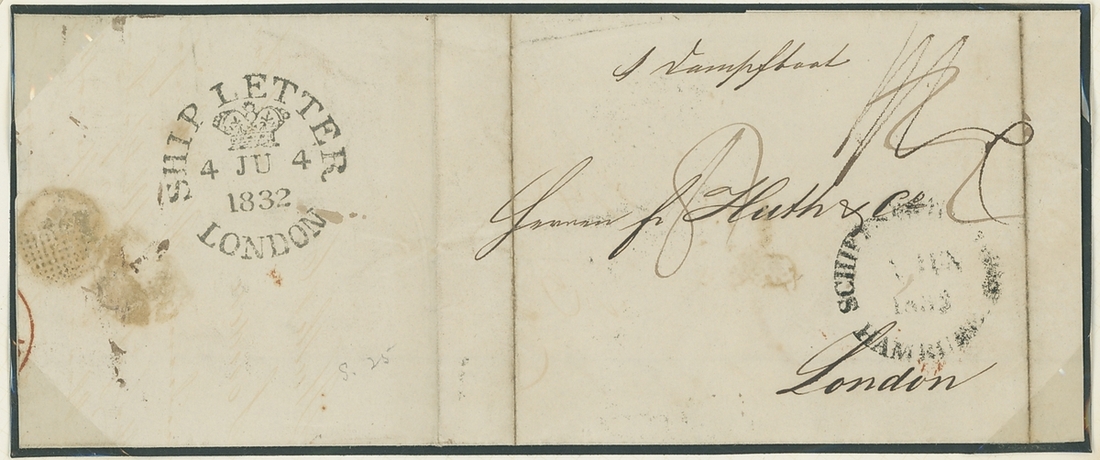 SHIP LETTER
4 JU 4
1832
LONDON
S. 25
Dampfboot
Herren F. Huth & Co
SCHIP
JUN
HAMBURG
London